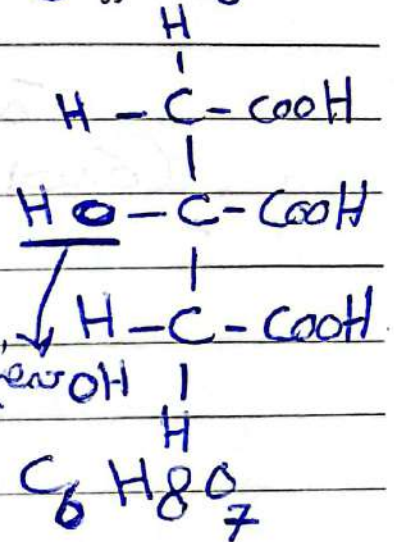 H
H - C - COOH
HO - C - COOH
H - C - COOH
OH
H
C6H8O7